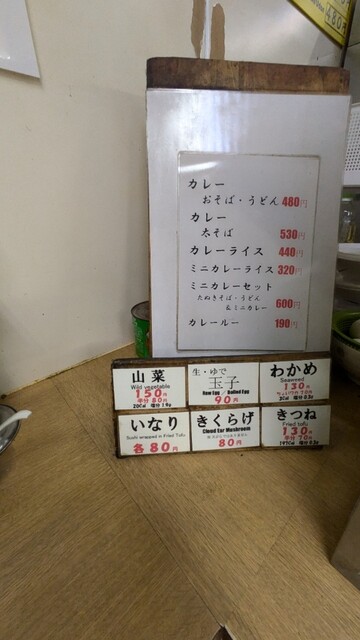 カレー
おそば・うどん 480円
カレー
太そば 530円
カレーライス 440円
ミニカレーライス 320円
ミニカレーセット
たぬきそば・うどん
&ミニカレー 600円
カレールー 190円
山菜
Wild vegetable
150円
半分 80円
20Cal 塩分 1.9g
生・ゆで
玉子
Raw Egg / Boiled Egg
90円
わかめ
Seaweed
130円
いなり
Sushi wrapped in Fried Tofu
各80円
きくらげ
Cloud Ear Mushroom
80円
きつね
Fried tofu
130円
半分 70円